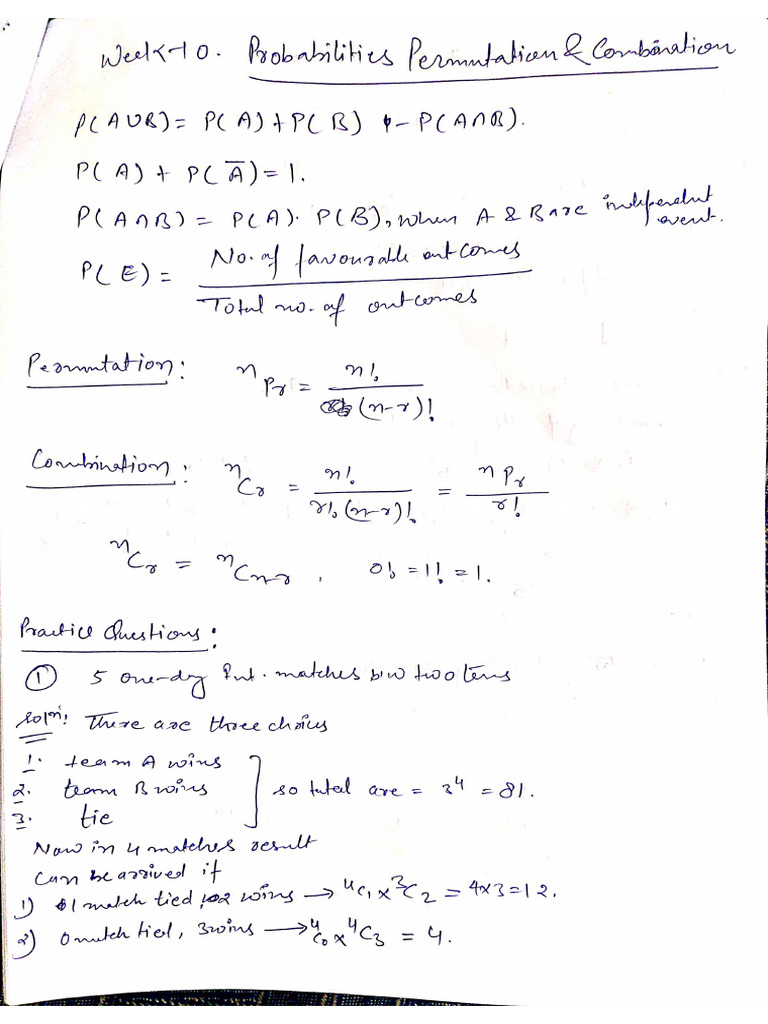 Week-10. Probabilities Permutation & Combination
P(A∪B) = P(A) + P(B) - P(A∩B).
P(A) + P(A̅) = 1.
P(A∩B) = P(A). P(B), when A & B are independent event.
P(E) = No. of favourable outcomes / Total no. of outcomes
Permutation: ⁿPr = n! / (n-r)!
Combination: ⁿCr = n! / r! (n-r)! = ⁿPr / r!
ⁿCr = ⁿCn-r , 0! = 1! = 1.
Practice Questions:
① 5 one-day Int. matches b/w two
Soln: There are three choices
1. team A wins
2. team B wins
3. tie
so total are = 3⁴ = 81.
Now in 4 matches result
can be arrived if
1) 1 match tied, 2 wins → ⁴C₁ × ³C₂ = 4×3 = 12.
2) 0 match tied, 3 wins → ⁴C₀ × ⁴C₃ = 4.